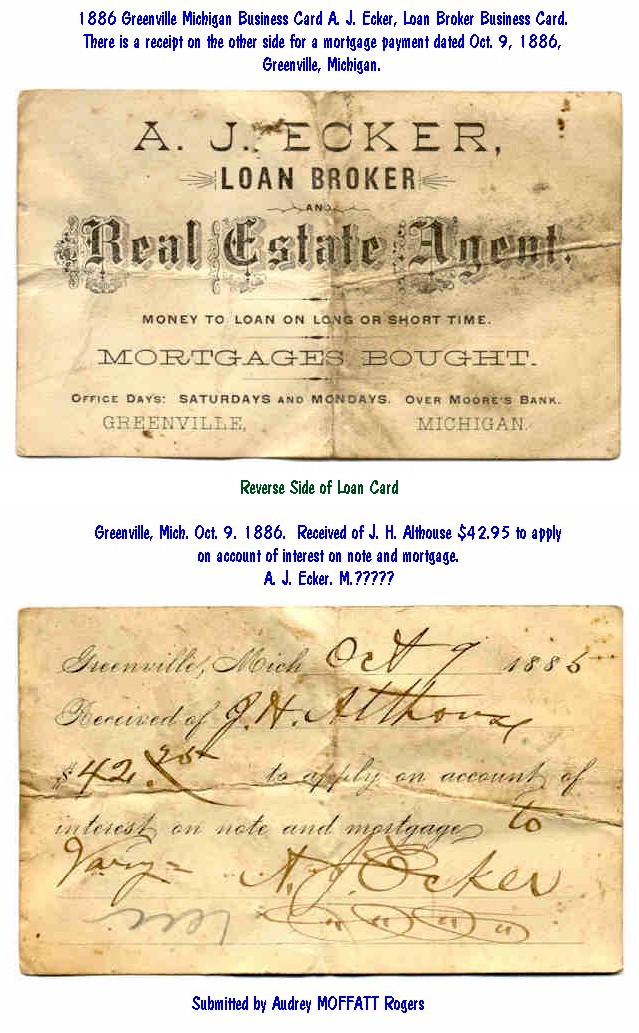 1886 Greenville Michigan Business Card A. J. Ecker, Loan Broker Business Card.
There is a receipt on the other side for a mortgage payment dated Oct. 9, 1886,
Greenville, Michigan.
A. J. ECKER,
LOAN BROKER
AND
Real Estate Agent.
MONEY TO LOAN ON LONG OR SHORT TIME.
MORTGAGES BOUGHT.
OFFICE DAYS: SATURDAYS AND MONDAYS. OVER MOORE'S BANK.
GREENVILLE, MICHIGAN.
Reverse Side of Loan Card
Greenville, Mich. Oct. 9. 1886. Received of J. H. Althouse $42.95 to apply
on account of interest on note and mortgage.
A. J. Ecker. M.?????
Greenville, Mich Oct 9 188
Received of J. H. Althouse
$42 to apply on account of
interest on note and mortgage to
A. J. Ecker
Submitted by Audrey MOFFATT Rogers